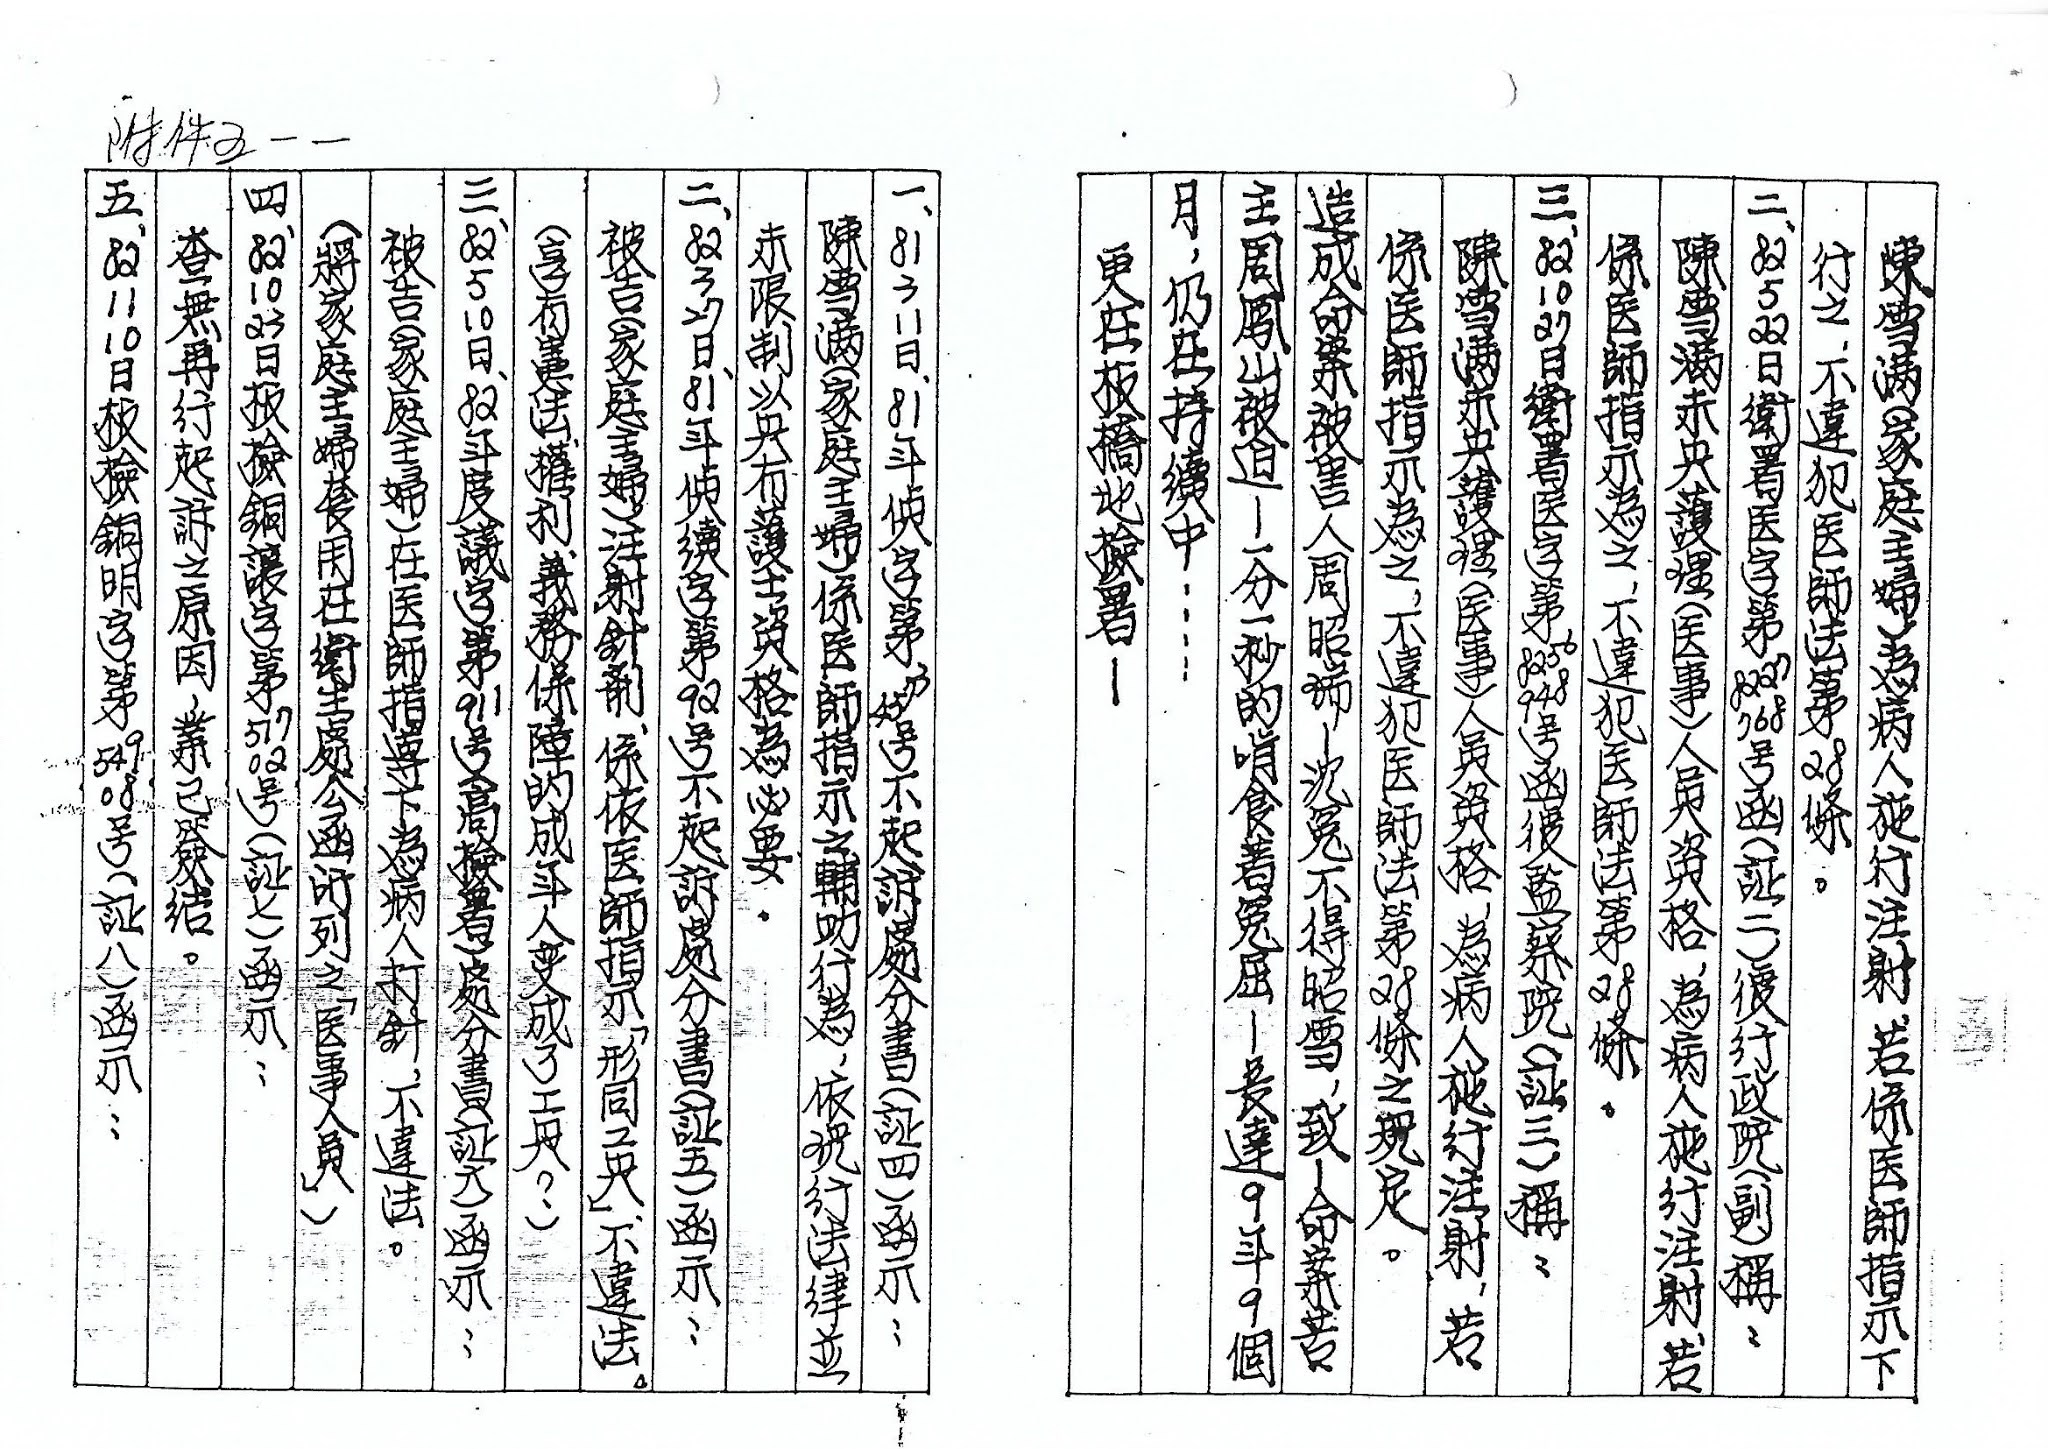 附件五－一
陳雪满(家庭主婦)為病人施行注射、若係医師指示下
行之、不違犯医師法第28條。
二、82 5 22日衛署医字第8227768号函(証二)復行政院(副)稱：
陳雪满未具護理(医事)人員資格、為病人施行注射、若
係医師指示為之、不違犯医師法第28條。
三、82 10 27日衛署医字第8256948号函復監察院(証三)稱：
陳雪满未具護理(医事)人員資格、為病人施行注射，若
係医師指示為之，不違犯医師法第28條之規定。
造成命案被害人周昭瑞－沈冤不得昭雪，致－命案苦
主周鳳山被迫－一分一秒的啃食著冤屈－長達9年9個
月，仍在持續中……
更在板橋地檢署－
一、81 3 11日、81年偵字第号不起訴處分書(証四)函示：
陳雪满(家庭主婦)係医師指示之輔助行為、依現行法律並
未限制以具有護士資格為必要。
二、82 3 27日、81年偵續字第92号不起訴處分書(証五)函示：
被告(家庭主婦)注射針劑、係依医師指示「形同工具」、不違法。
(享有憲法、權利、義務保障的成年人变成了工具？)
三、82 5 10日、82年度議字第911号(高檢署)處分書(証六)函示：
被告(家庭主婦)在医師指導下為病人打針，不違法。
(將家庭主婦套用在衛生處公函所列之「医事人員」)
四、82 10 23日板檢銅讓字第51702号(証七)函示：
查無再行起訴之原因，業已簽結。
五、82 11 10日板檢銅明字第54908号(証八)函示：